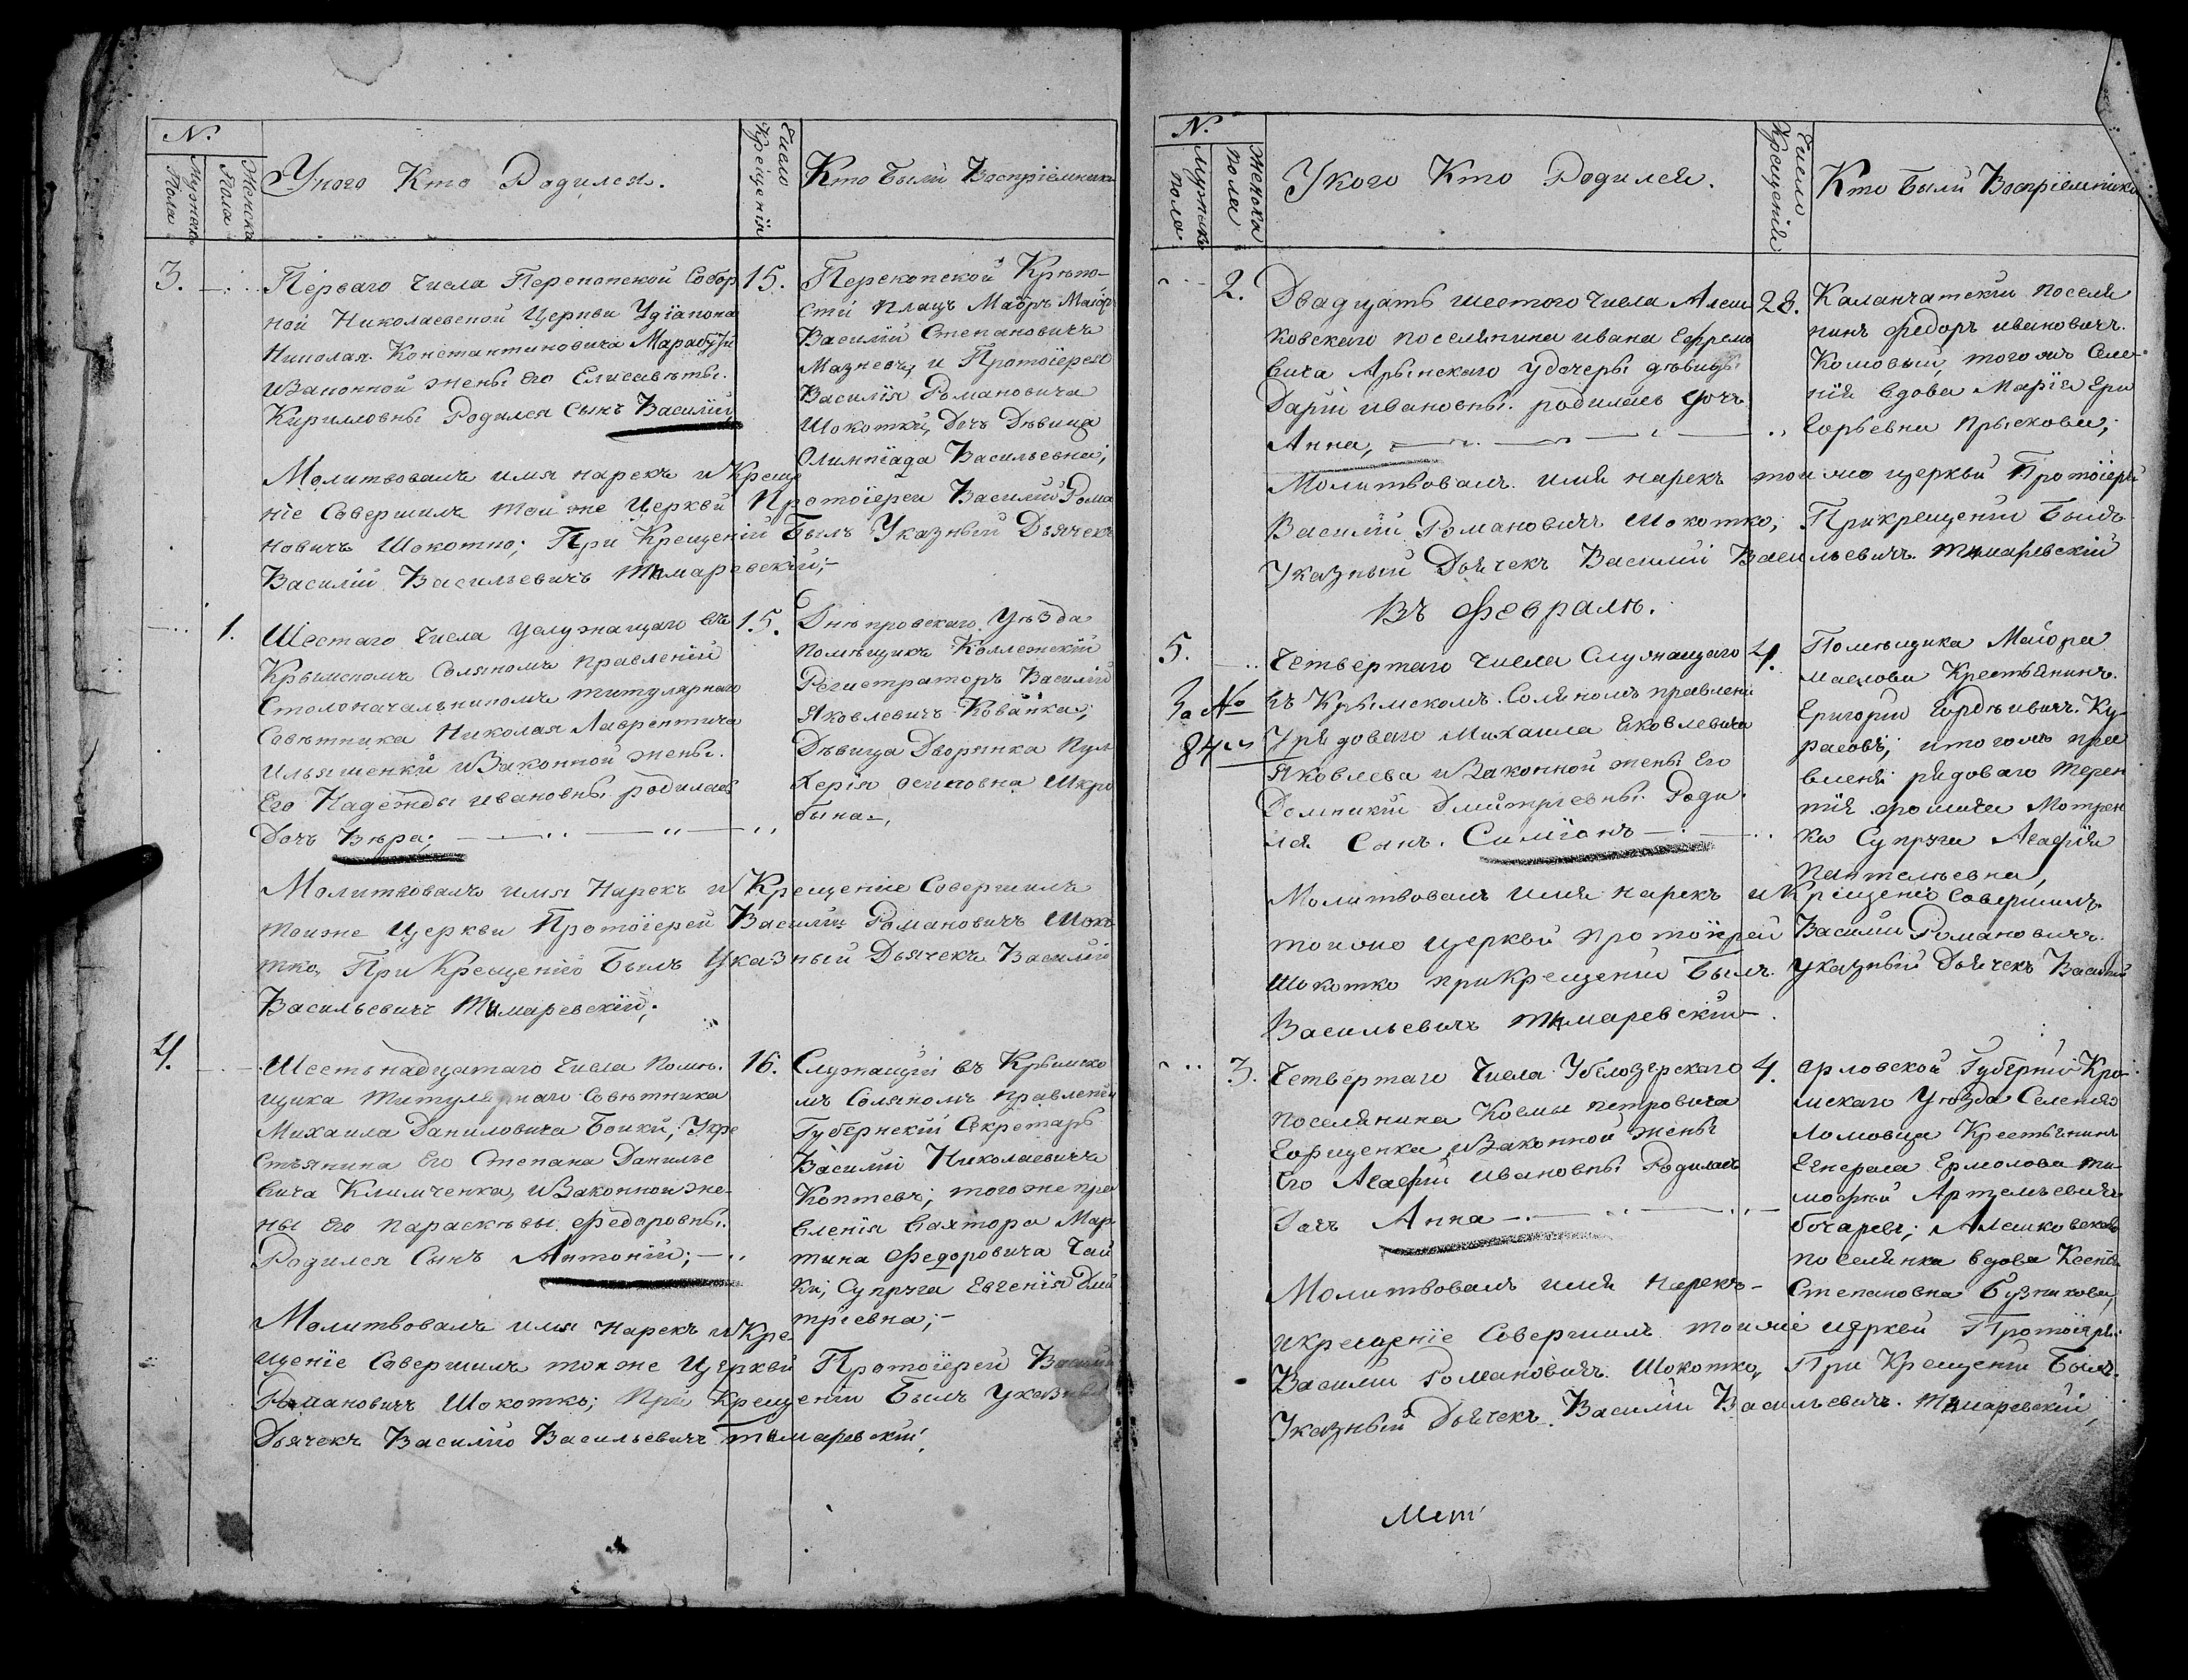 №.
Мужеска Пола
Женска Пола
У кого Кто Родился.
Число Крещенія
Кто были Воспріемники
3.
Перваго числа Перекопской Собор
ной Николаевской Церкви Удіакона
Николая Константиновича Марабути
изаконной жены его Елисаветы
Кириловны Родился Сынъ Василій
15.
Перекопской Крѣпо-
сти плацъ Маіоръ Маіоръ
Василій Степановичъ
Мазневъ, и Протоіерея
Василія Романовича
Шокотки, Дочь Дѣвица
Олимпіада Васильевна;
Молитвовалъ имя нарекъ и Креще
ніе Совершилъ той же Церкви Протоіерей Василий Рома
новичъ Шокотко; При Крещеніи Былъ Указный Дьячекъ
Василій Васильевичъ Тимаревскій;-
1.
Шестаго числа услужащаго въ
Крымскомъ Соляномъ правленіи
Столоначальникомъ титулярнаго
Совѣтника Николая Лаврентича
Ильяшенки изаконной жены
Его Надежды ивановны родилась
Дочь Вѣра;
15.
Днѣпровскаго Уѣзда
помѣщикъ Коллежскій
Регистраторъ Василій
Яковлевичъ Ковалка;
Дѣвица Дворянка Пул
херія осиповна Шкри
бина-,
Молитвовалъ имя Нарекъ и Крещеніе Совершилъ
тоиже Церкви Протоіерей Василій Романовичъ Шоко
тко, При Крещеніи Былъ Указный Дьячекъ Василій
Васильевичъ Тимаревскій;
4.
Шестьнадцатаго числа Помѣ-
щика Титулярнаго Совѣтника
Михаила Даниловича Бойки, Укре
стьянина Его Степана Данилье
вича Климченка, изаконной же-
ны его параскѣвы Федоровны
Родился Сынъ Антоній;
16.
Служащій въ Крымско
мъ Соляномъ правленіи
Губернскій Секретарь
Василій Николаевичъ
Коптевъ; того же пра
вленія Вахтора Мар
тина Федоровича Чай
ки, Супруга Евгенія Дми
тріевна;-
Молитвовалъ имя нарекъ и Кре
щеніе Совершилъ тояже Церкви Протоіерей Василій
Романовичъ Шокотко; При Крещеніи Былъ Указный
Дьячекъ Василій Васильевичъ Тимаревскій,
№.
Мужеска пола
Женска пола
У кого Кто Родился.
Число Крещенія
Кто были Воспріемники
2.
Двадцать шестого числа Алеш
ковскаго поселянина ивана Ефремо
вича Арынскаго удочеры дѣвицы
Дарии ивановны родилась дочь
Анна,
28.
Каланчатскій поселя
нинъ федоръ ивановичъ
Комовый, того жъ Селе-
нія вдова Марія Гри
горьевна прыскова;
Молитвовалъ имя нарекъ той же церкви Протоіерей
Василій Романовичъ Шокотко; При крещеніи Былъ
Указный Дьячекъ Василий Васильевичъ Тимаревскій
Въ Февралѣ.
5.
За №
84
Четвертаго числа Служащаго
въ Крымскомъ Соляномъ правлени
Урядоваго Михаила Яковлевича
Яковлева изаконной жены Его
Домникіи Дмитріевны Роди
лся Сынъ. Симіонъ
4.
Помѣщика Маіора
маслова Крестьянинъ
Григорій Гордѣивичъ Ку-
расовъ; итогожъ пра
вленія рядоваго Терен
тія фомича Мотрен
ки Супруга Агафія
пантелѣевна,
Молитвовалъ имя нарекъ и Крещеніе Совершилъ
той же церкви протоиерей Василий Романовичъ
Шокотко при Крещеніи Былъ указный дьячекъ Василій
Васильевичъ Тимаревскій
3.
Четвертаго числа Убѣлозерскаго
поселянина Козмы петровича
Горщенка, изаконной жены
его Агафіи ивановны Родилась
Дочь Анна
4.
орловской Губерніи Кро-
мскаго Уѣзда Селенія
Ломовца Крестьянинъ
Генерала Ермолова ти-
мофѣй Артемьевичъ
бочаревъ; Алешковская
поселянка вдова Ксенія
Степановна Бузникова,
Молитвовалъ имя нарекъ
икрещеніе Совершилъ тоиже церкви Протоіерей
Василій Романовичъ Шокотко, При Крещеніи Былъ
Указный Дьячекъ Василій Васильевичъ Тимаревскій,